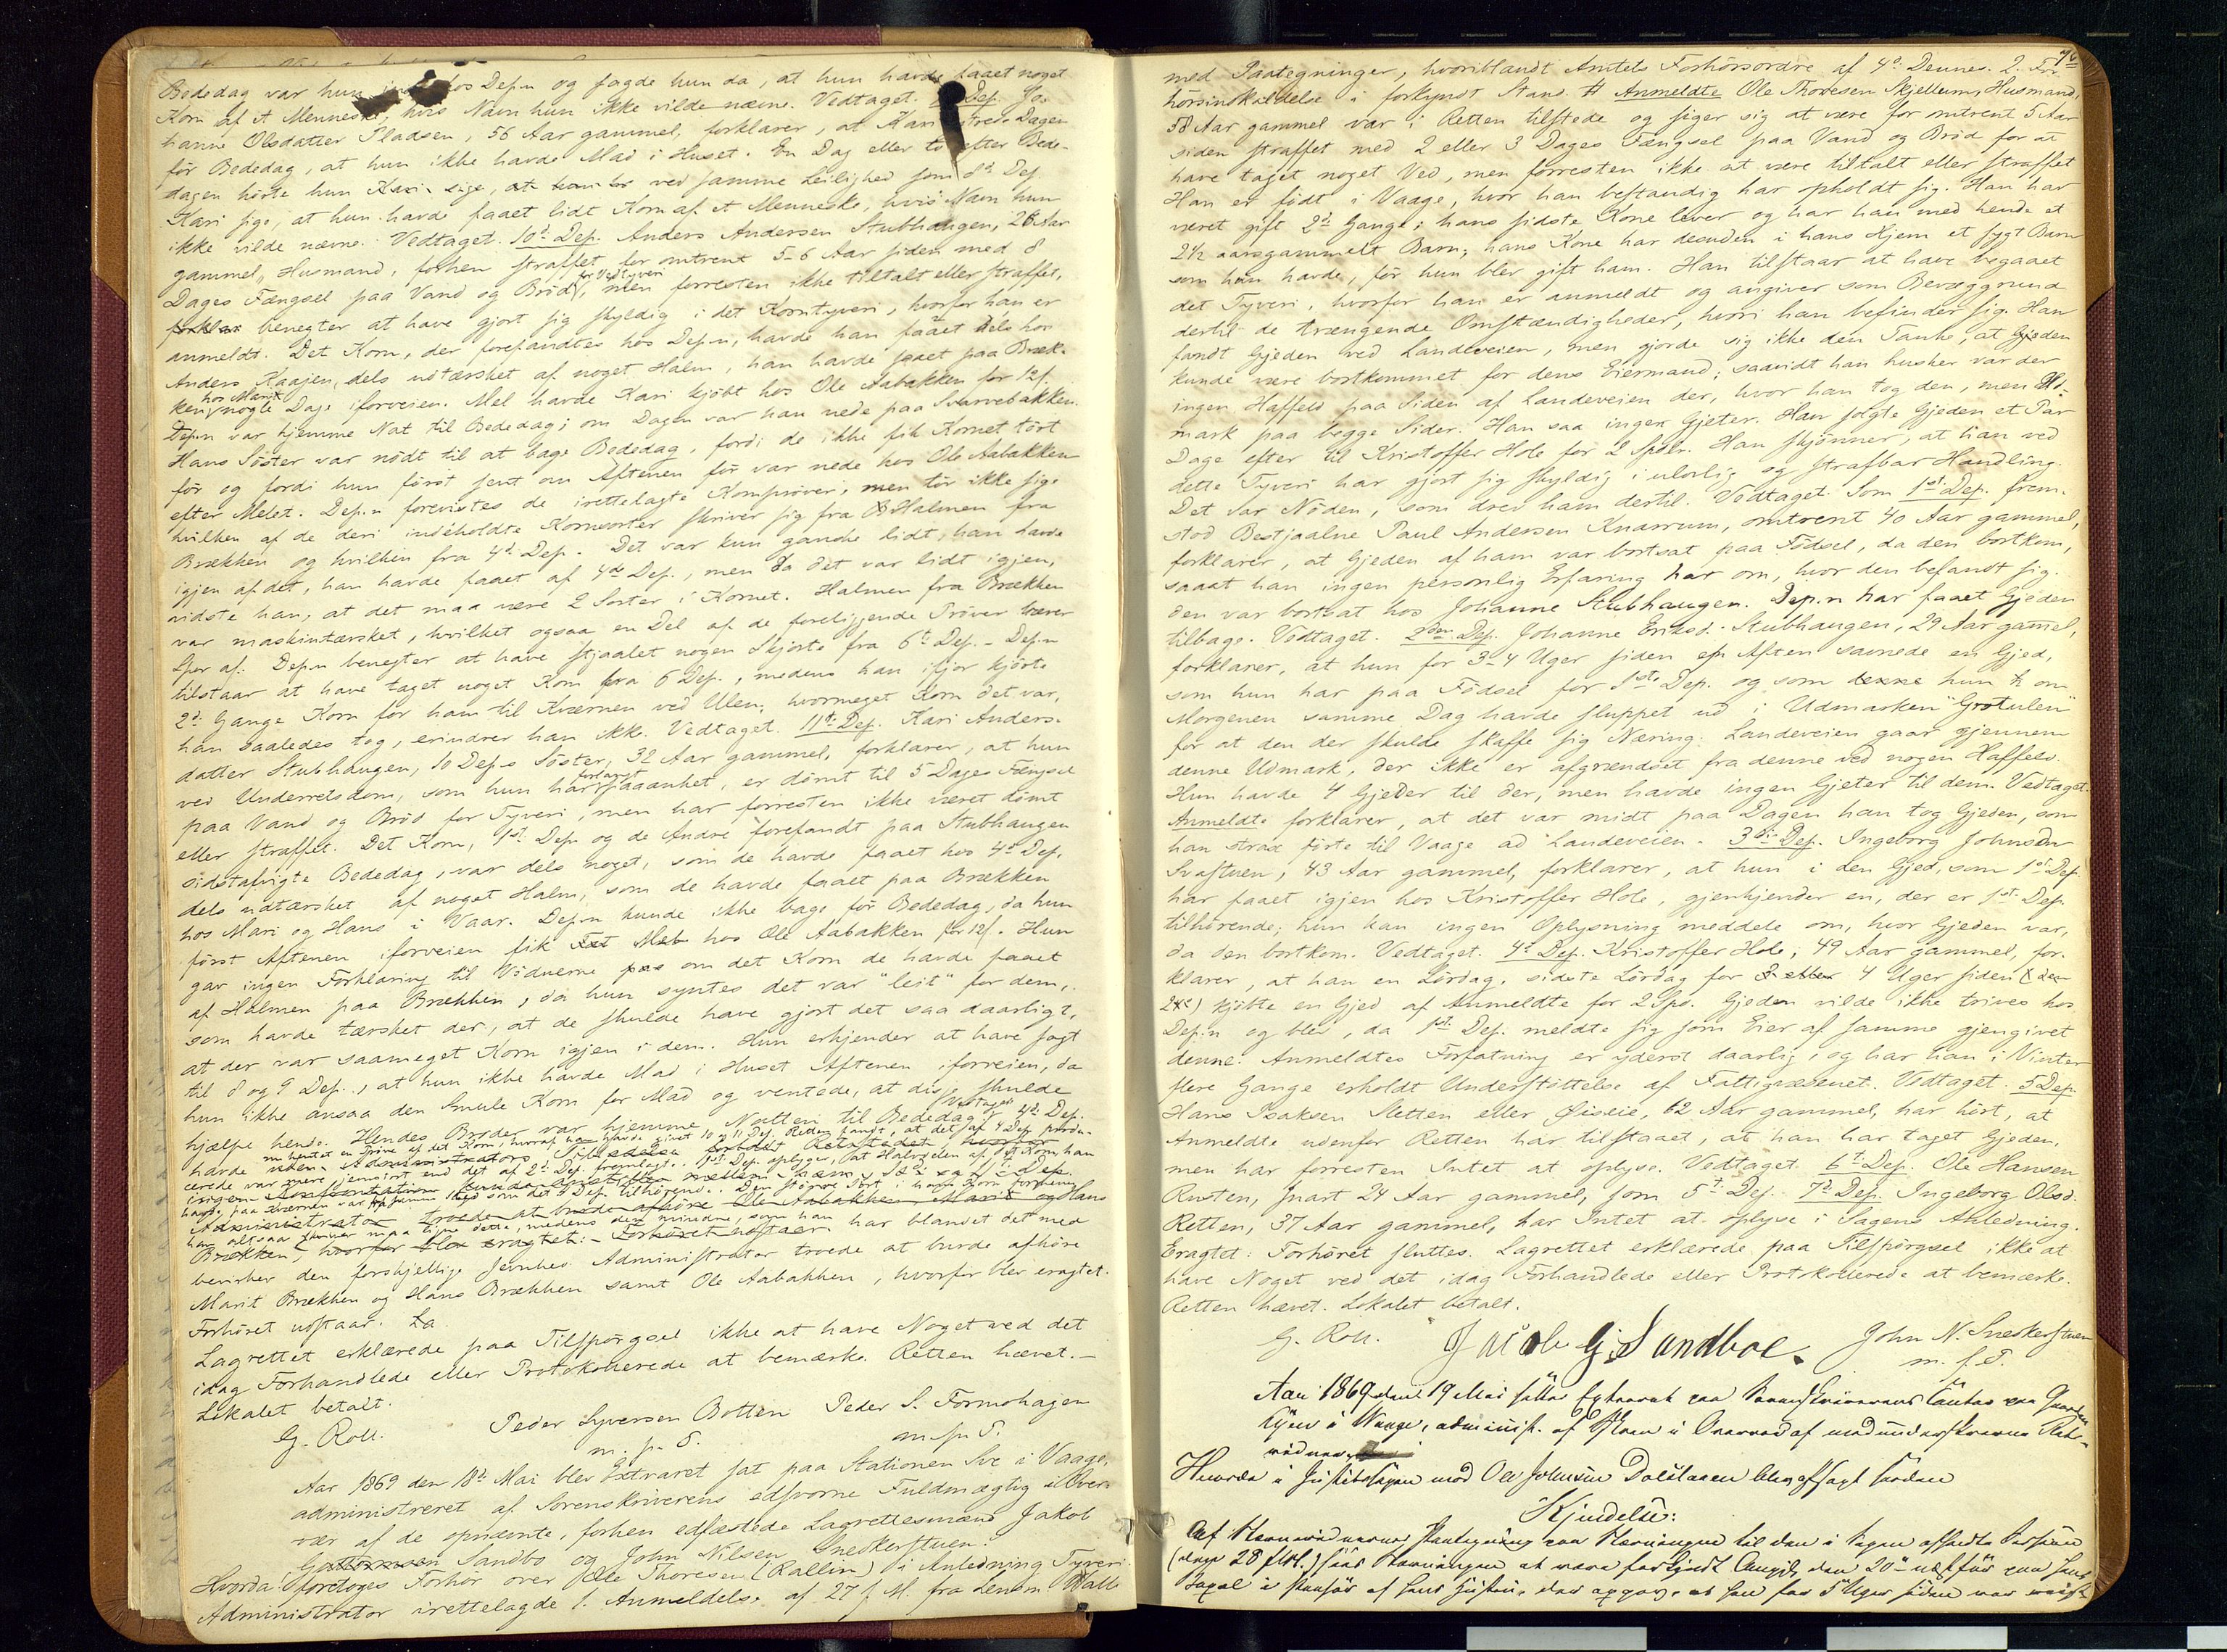 Bededag var hun inde hos Dep.n og sagde hun da, at hun havde faaet noget
Korn af et Menneske, hvis Navn hun ikke vilde nævne. Vedtaget. Dep. Jo-
hanne Olsdatter Pladsen, 56 Aar gammel, forklarer, at Kari ytrede Dagen
før Bededag, at hun ikke havde Mad i Huset. En Dag eller to efter Bede-
dagen hørte hun Kari sige, at ved samme Leilighed som 8d Dep.
Kari sige, at hun havde faaet lidt Korn af et Menneske, hvis Navn hun
ikke vilde nævne. Vedtaget. 10d Dep. Anders Andersen Stubhaugen, 26 Aar
gammel, Husmand, forhen straffet for omtrent 5-6 Aar siden med 8
Dages Fængsel paa Vand og Brød for Vedtyveri, men forresten ikke tiltalt eller straffet,
forklar benegter at have gjort sig skyldig i det Korntyveri, hvorfor han er
anmeldt. Det Korn, der forefandtes hos Dep.n, havde han faaet dels hos
Anders Kaajen, dels udtærsket af noget Halm, han havde faaet paa Bræk-
ken hos Marit nogle Dage iforveien. Mel havde Kari kjøbt hos Ole Aabakken for 12 s.
Dep.n var hjemme Nat til Bededag; om Dagen var han nede paa Svarvebakken.
Hans Søster var nødt til at bage Bededag, fordi de ikke fik Kornet tørt
før og fordi hun først sent om Aftenen før var nede hos Ole Aabakken
efter Melet. Dep.n forevistes de irettelagte Kornprøver, men tør ikke sige
hvilken af de deri indeholdte Kornsorter skriver sig fra Halmen fra
Brækken og hvilken fra 4d Dep. Det var kun ganske lidt, han havde
igjen af det, han havde faaet af 4de Dep., men da det var lidt igjen,
vidste han, at det maa være 2 Sorter i Kornet. Halmen fra Brækken
var maskintærsket, hvilket ogsaa en Del af de foreliggende Prøver bærer
Spor af. Dep.n benegter at have stjaalet nogen Skjorte fra 6t Dep. - Dep.n
tilstaar at have taget noget Korn fra 6 Dep., medens han ifjor kjørte
2d Gange Korn for ham til Kværnen ved Ulen; hvormeget Korn det var,
han saaledes tog, erindrer han ikke. Vedtaget. 11t Dep. Kari Anders-
datter Stubhaugen, 10 Dep.s Søster, 32 Aar gammel, forklarer, at hun
ved Underretsdom, som hun har forlangt paaanket, er dømt til 5 Dages Fængsel
paa Vand og Brød for Tyveri, men har forresten ikke været dømt
eller straffet. Det Korn, 1st Dep. og de Andre forefandt paa Stubhaugen
sidstafvigte Bededag, var dels noget, som de havde faaet hos 4d Dep.,
dels udtærsket af noget Halm, som de havde faaet paa Brækken
hos Mari og Hans i Vaar. Dep.n kunde ikke bage før Bededag, da hun
først Aftenen iforveien fik Mel hos Ole Aabakken for 12 s. Hun
gav ingen Forklaring til Vidnerne om det Korn de havde faaet
af Halmen paa Brækken, da hun syntes det var "leit" for dem,
som havde tærsket der, at de skulde have gjort det saa daarligt,
at der var saameget Korn igjen i dem. Hun erkjender at have sagt
til 8 og 9 Dep., at hun ikke havde Mad i Huset Aftenen iforveien, da
hun ikke ansaa den Smule Korn for Mad og ventede, at disse skulde
hjælpe hende. Hendes Broder var hjemme Natten til Bededag. Vedtaget. 4d Dep.
havde uden Administrators
Korn, hvoraf han havde givet 10 og 11 Dep. Retten fandt, at det af 4 Dep. produ-
cerede var mere jevnført end det af 2d Dep. fremlagte. 1st Dep. oplyser, at Halvdelen af det Korn, han
Administrator troede at burde afhøre Ole Aabakken Marit og Hans
Brækken, hvorfor blev eragtet: Forhøret udstaar. har blandet det med
bevirker den forskjellige Jevnhed. Administrator troede at burde afhøre
Marit Brækken og Hans Brækken samt Ole Aabakken, hvorfor blev eragtet:
Forhøret udstaar. La
Lagrettet erklærede paa Tilspørgsel ikke at have Noget ved det
idag Forhandlede eller Protokollerede at bemærke. Retten hævet.-
Lokalet betalt.
G. Roll. Peder Syversen Botten Peder S. Formohagen
m. p. P. m. p. P.
Aar 1869 den 18d Mai blev Extraret sat paa Stationen Sve i Vaage,
administreret af Sorenskriverens edsvorne Fuldmægtig i Over-
vær af de opnævnte, forhen edfæstede Lagrettesmænd Jakob
Guttormsen Sandbo og John Nilsen Snekkerstuen.
Hvorda foretoges Forhør over Ole Thoresen (Rallin) i Anledning Tyveri.
Administrator irettelagde 1. Anmeldelse af 27 f. M. fra Lensm. Wall
med Paategninger, hvoriblandt Amtets Forhørsordre af 4d Dennes. 2. For-
hørsindkaldelse i forkyndt Stand. Anmeldte Ole Thoresen Skjellum, Husmand,
58 Aar gammel var i Retten tilstede og siger sig at være for omtrent 5 Aar
siden straffet med 2 eller 3 Dages Fængsel paa Vand og Brød for at
have taget noget Ved, men forresten ikke at være tiltalt eller straffet
Han er født i Vaage, hvor han bestandig har opholdt sig. Han har
været gift 2d Gange; hans sidste Kone lever og har han med hende et
2½ aarsgammelt Barn; hans Kone har desuden i hans Hjem et sygt Barn
som hun havde, før hun blev gift ham. Han tilstaar at have begaaet
det Tyveri, hvorfor han er anmeldt og angiver som Bevæggrund
dertil de trængende Omstændigheder, hvori han befinder sig. Han
fandt Gjeden ved Landeveien, men gjorde sig ikke den Tanke, at Gjeden
kunde være bortkommet for dens Eiermand; saavidt han husker var der
ingen Haffeld paa Siden af Landeveien der, hvor han tog den, men Ud-
mark paa begge Sider. Han saa ingen Gjeter. Han solgte Gjeden et Par
Dage efter til Kristoffer Hole for 2 Spdlr. Han skjønner, at han ved
dette Tyveri har gjort sig skyldig i ulovlig og strafbar Handling.
Det var Nøden, som drev ham dertil. Vedtaget. Som 1st Dep. frem-
stod Bestjaalne Paul Andersen Knarrum, omtrent 40 Aar gammel,
forklarer, at Gjeden af ham var bortsat paa Fødsel, da den bortkom,
saaat han ingen personlig Erfaring har om, hvor den befandt sig.
Den var bortsat hos Johanne Stubhaugen. Dep.n har faaet Gjeden
tilbage. Vedtaget. 2den Dep. Johanne Eriksd. Stubhaugen, 29 Aar gamel,
forklarer, at hun for 3-4 Uger siden en Aften savnede en Gjed,
som hun har paa Fødsel for 1ste Dep. og som hun om
Morgenen samme Dag havde sluppet ud i Udmarken "Grotulen"
for at den der skulde skaffe sig Næring. Landeveien gaar gjennem
denne Udmark, der ikke er afgrændset fra denne ved nogen Haffeld.
Hun havde 4 Gjeder til der, men havde ingen Gjeter til dem. Vedtaget.
Anmeldte forklarer, at det var midt paa Dagen han tog Gjeden, som
han strax førte til Vaage ad Landeveien. 3di Dep. Ingeborg Johnsdn
Svastuen, 43 Aar gammel, forklarer, at hun i den Gjed, som 1st Dep.
har faaet igjen hos Kristoffer Hole, gjenkjender en, der er 1st Dep.
tilhørende; hun kan ingen Oplysning meddele om, hvor Gjeden var,
da den bortkom. Vedtaget. 4d Dep. Kristoffer Hole, 49 Aar gammel, for-
klarer, at han en Lørdag, sidste Lørdag for 3 eller 4 Uger siden (den
24de) kjøbte en Gjed af Anmeldte for 2 Spd. Gjeden vilde ikke trives hos
Dep.n og blev, da 1st Dep. meldte sig som Eier af samme gjengivet
denne. Anmeldtes Forfatning er yderst daarlig, og har han i Vinter
flere Gange erholdt Understøttelse af Fattigvæsenet. Vedtaget. 5 Dep.
Hans Isaksen Sletten eller Øiseie, 62 Aar gammel, har hørt, at
Anmeldte udenfor Retten har tilstaaet, at han har taget Gjeden,
men har forresten Intet at oplyse. Vedtaget. 6t Dep. Ole Hansen
Rusten, snart 24 Aar gammel, som 5t Dep. 7d Dep. Ingeborg Olsd.
Retten, 37 Aar gammel, har Intet at oplyse i Sagens Anledning.
Eragtet: Forhøret sluttes. Lagrettet erklærede paa Tilspørgsel ikke at
have Noget ved det idag Forhandlede eller Protokollerede at bemærke.
Retten hævet. Lokalet betalt.
G. Roll. Jacob G. Sandboe. John N. Snekkerstuen
m. p. P.
Aar 1869 den 19 Mai sattes Extraret paa Sorenskriverens Contor paa Gaarden
i Vaage, administ. af i Overvær af medunderskrevne Rets-
vidner.
Hvorda i Justitssagen mod Ole Johnsen Dalstuen blev afsagt saadan
Kjendelse:
Af Stævnevidnernes Paategning paa Stævningen til den i Sagen afholdte